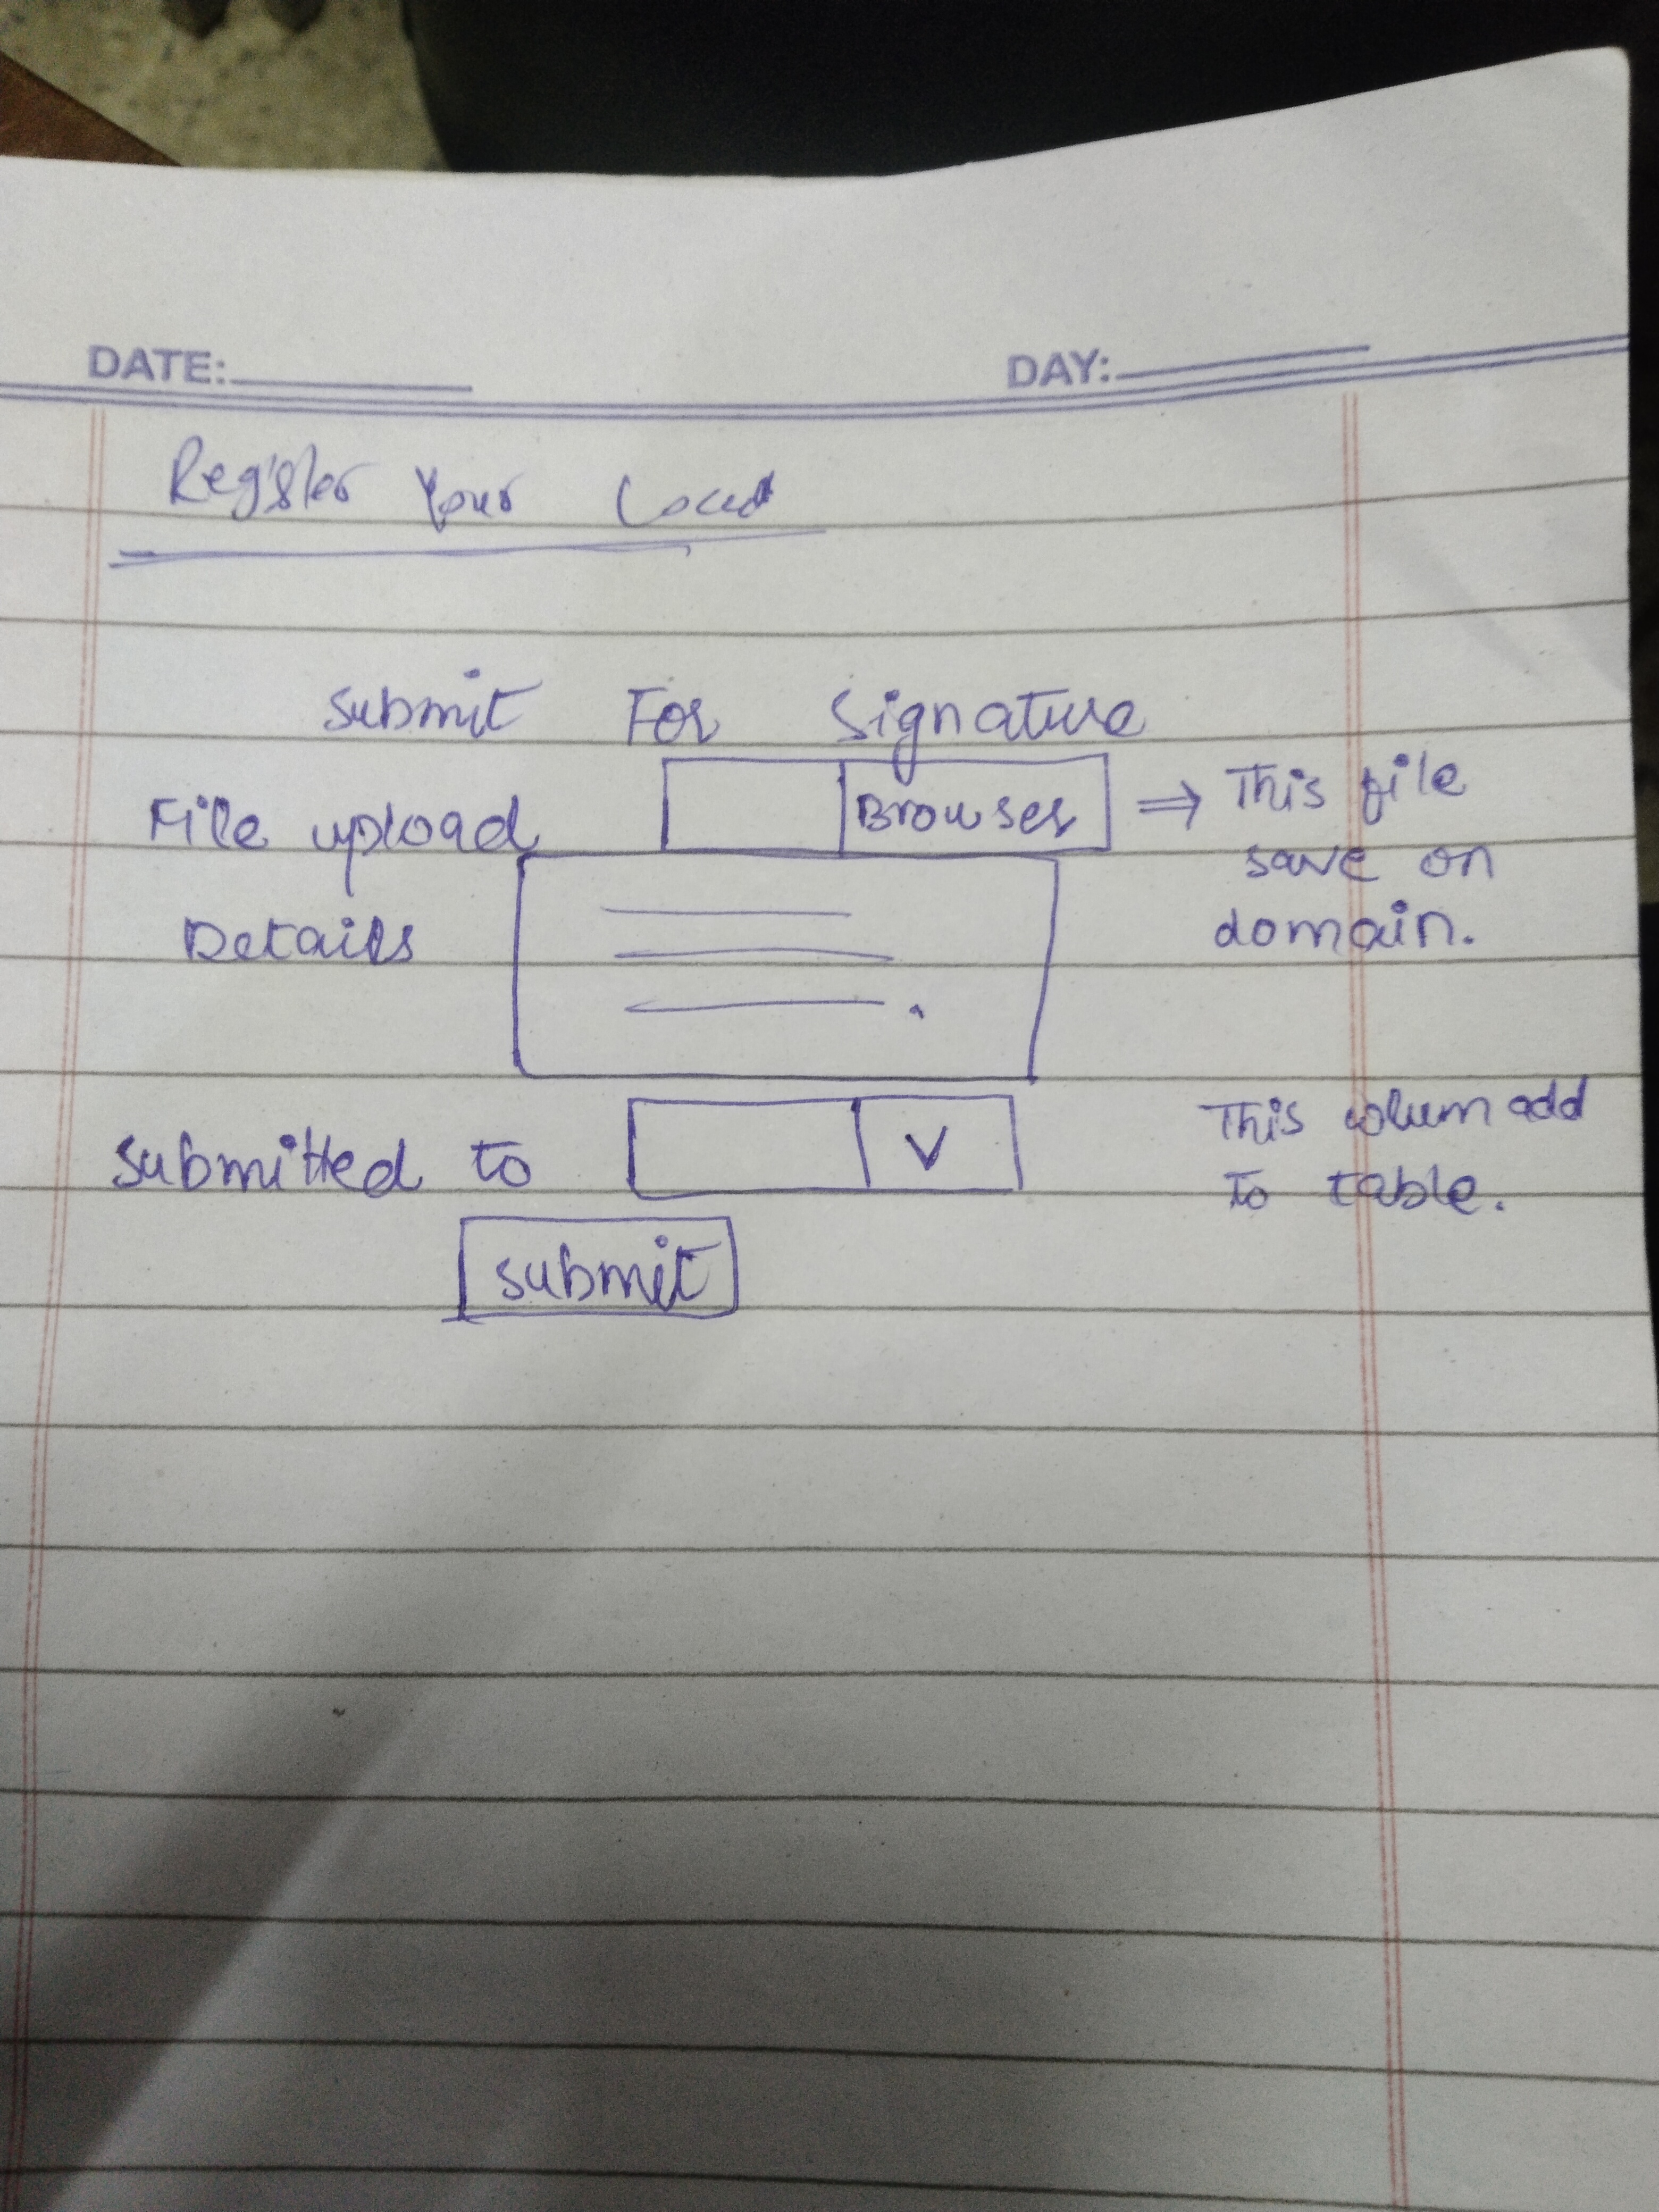 DATE: DAY:
Register Your
Submit For Signature
File upload Browses ⇒ This file
save on
Details domain.
This colum add
submitted to V to table.
submit